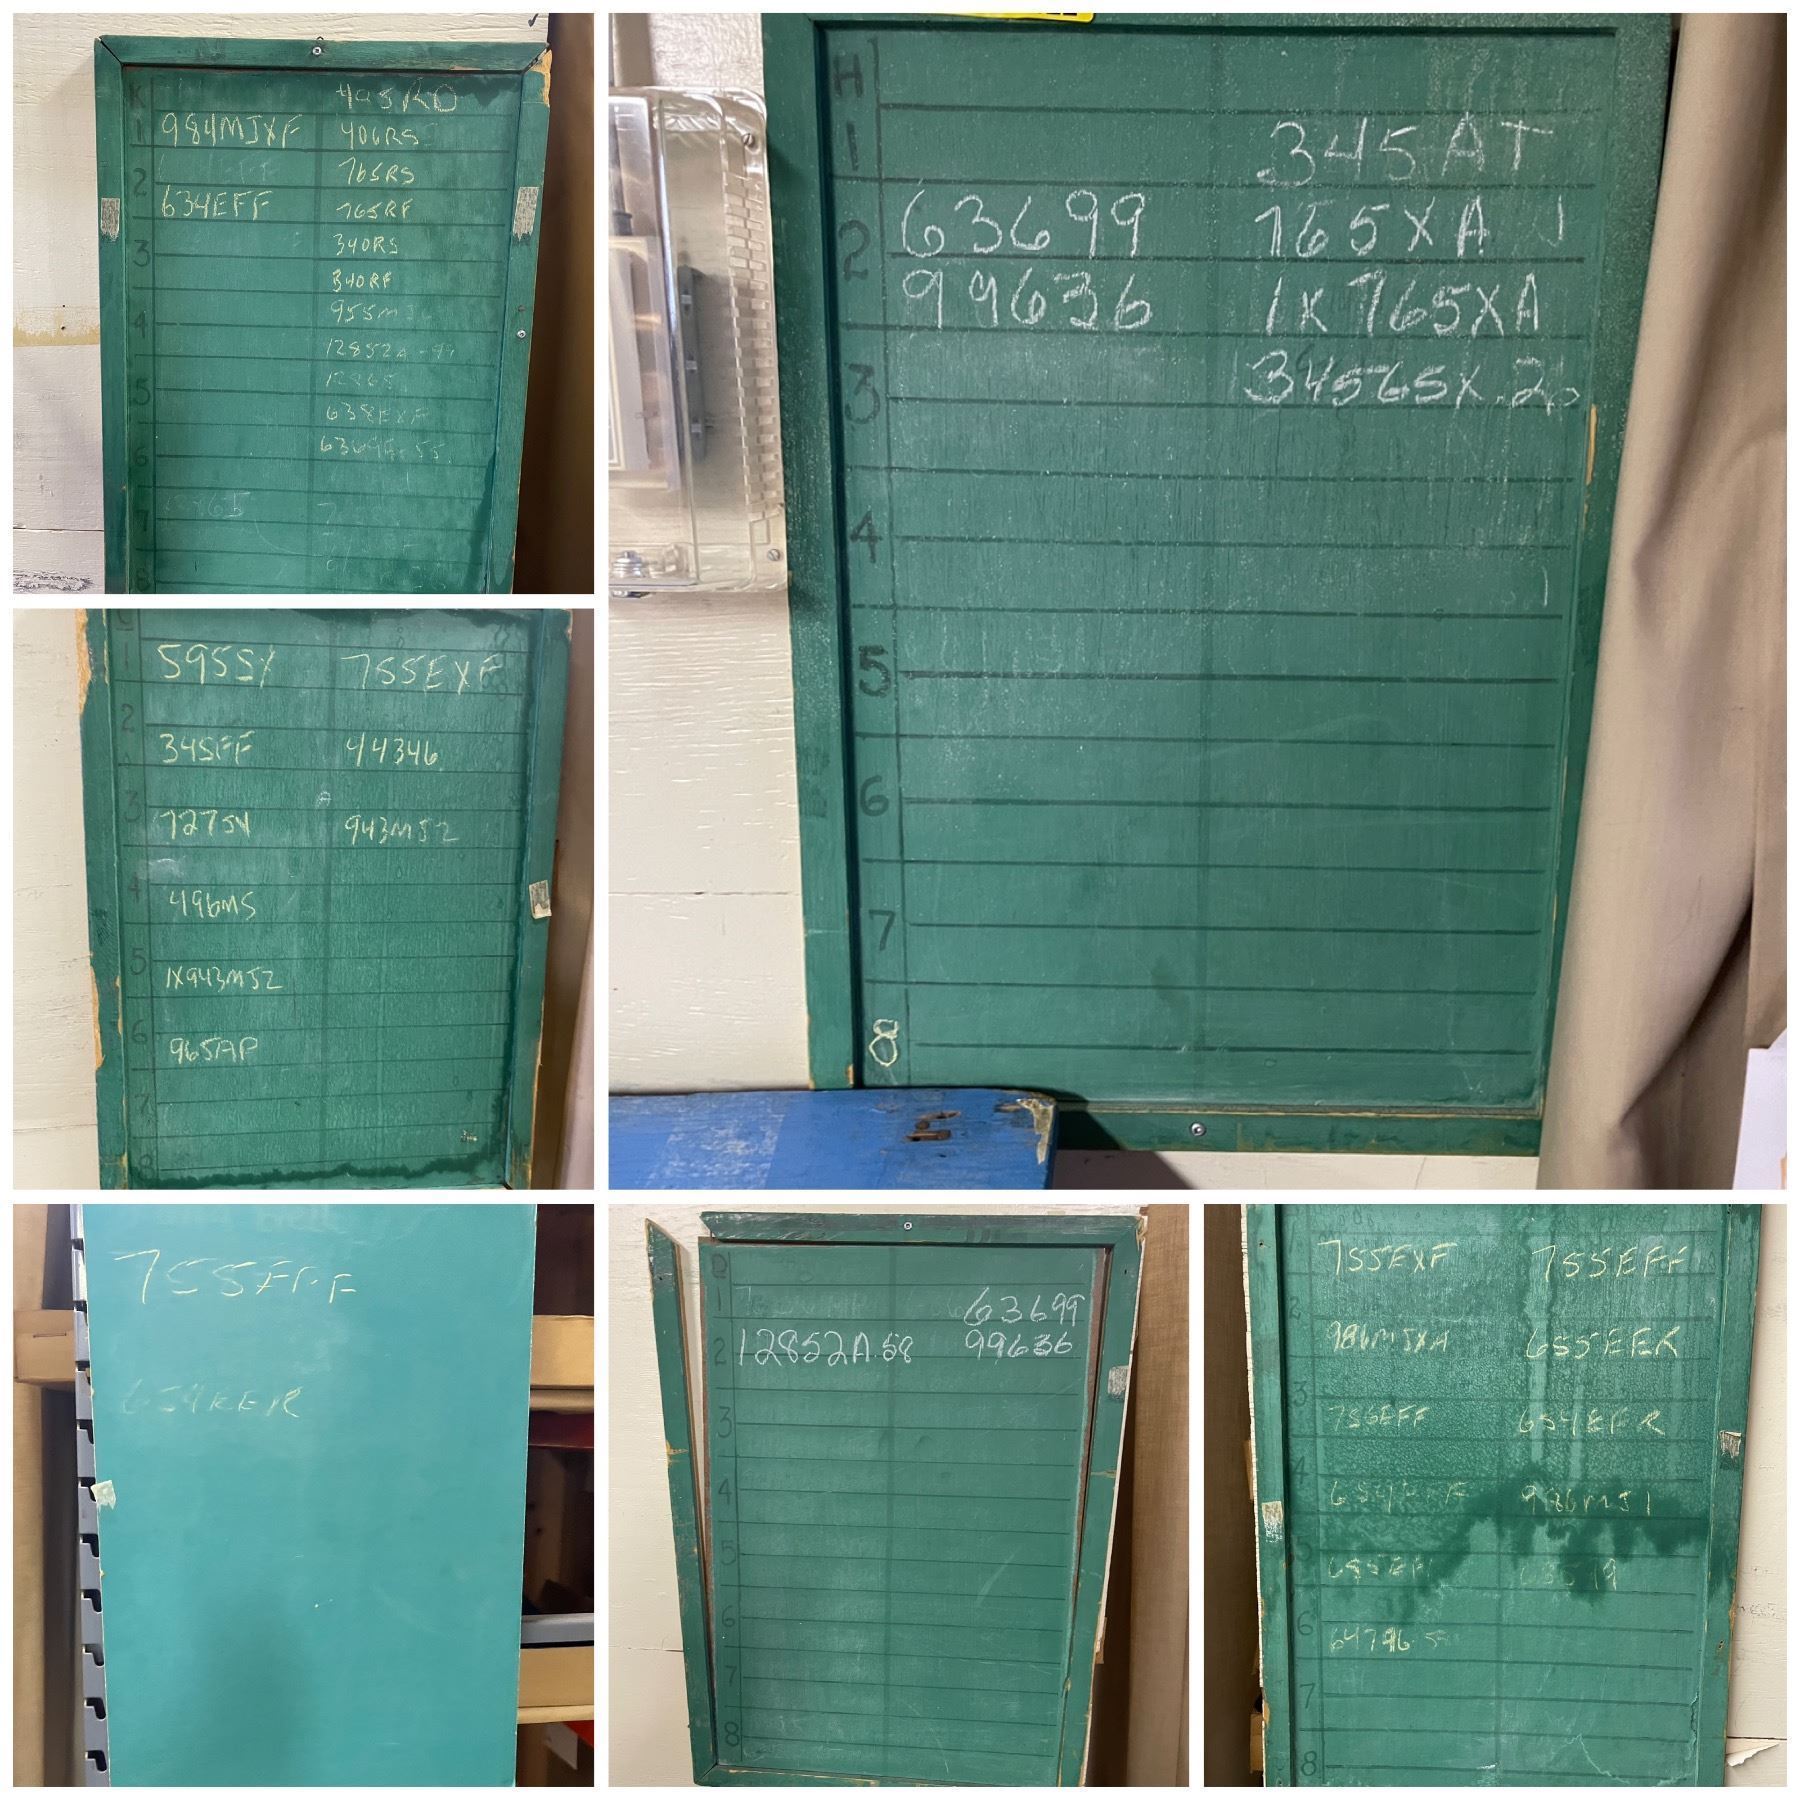 K 495RO
1 984MJXF 406RS
765RS
2 634EFF 765RF
3 340RS
340RF
4 955MJ
12852A-99
5
638EXF
6
7
8
H
1 345AT
2 63699 765XA
99636 1X765XA
3 34565X.20
4
5
6
7
8
1 595SY 755EXF
2 345FF 44346
3 727SY 943MJ2
4 496MS
5 1X943MJ2
6 965AP
7
8
755EFF
654EER
D
1 63699
2 12852A.58 99636
3
4
5
6
7
8
755EXF 755EFF
2 986MJXA 655EER
3 756EFF 654EFR
4 986MJ1
5 655EFF
6 64796
7
8